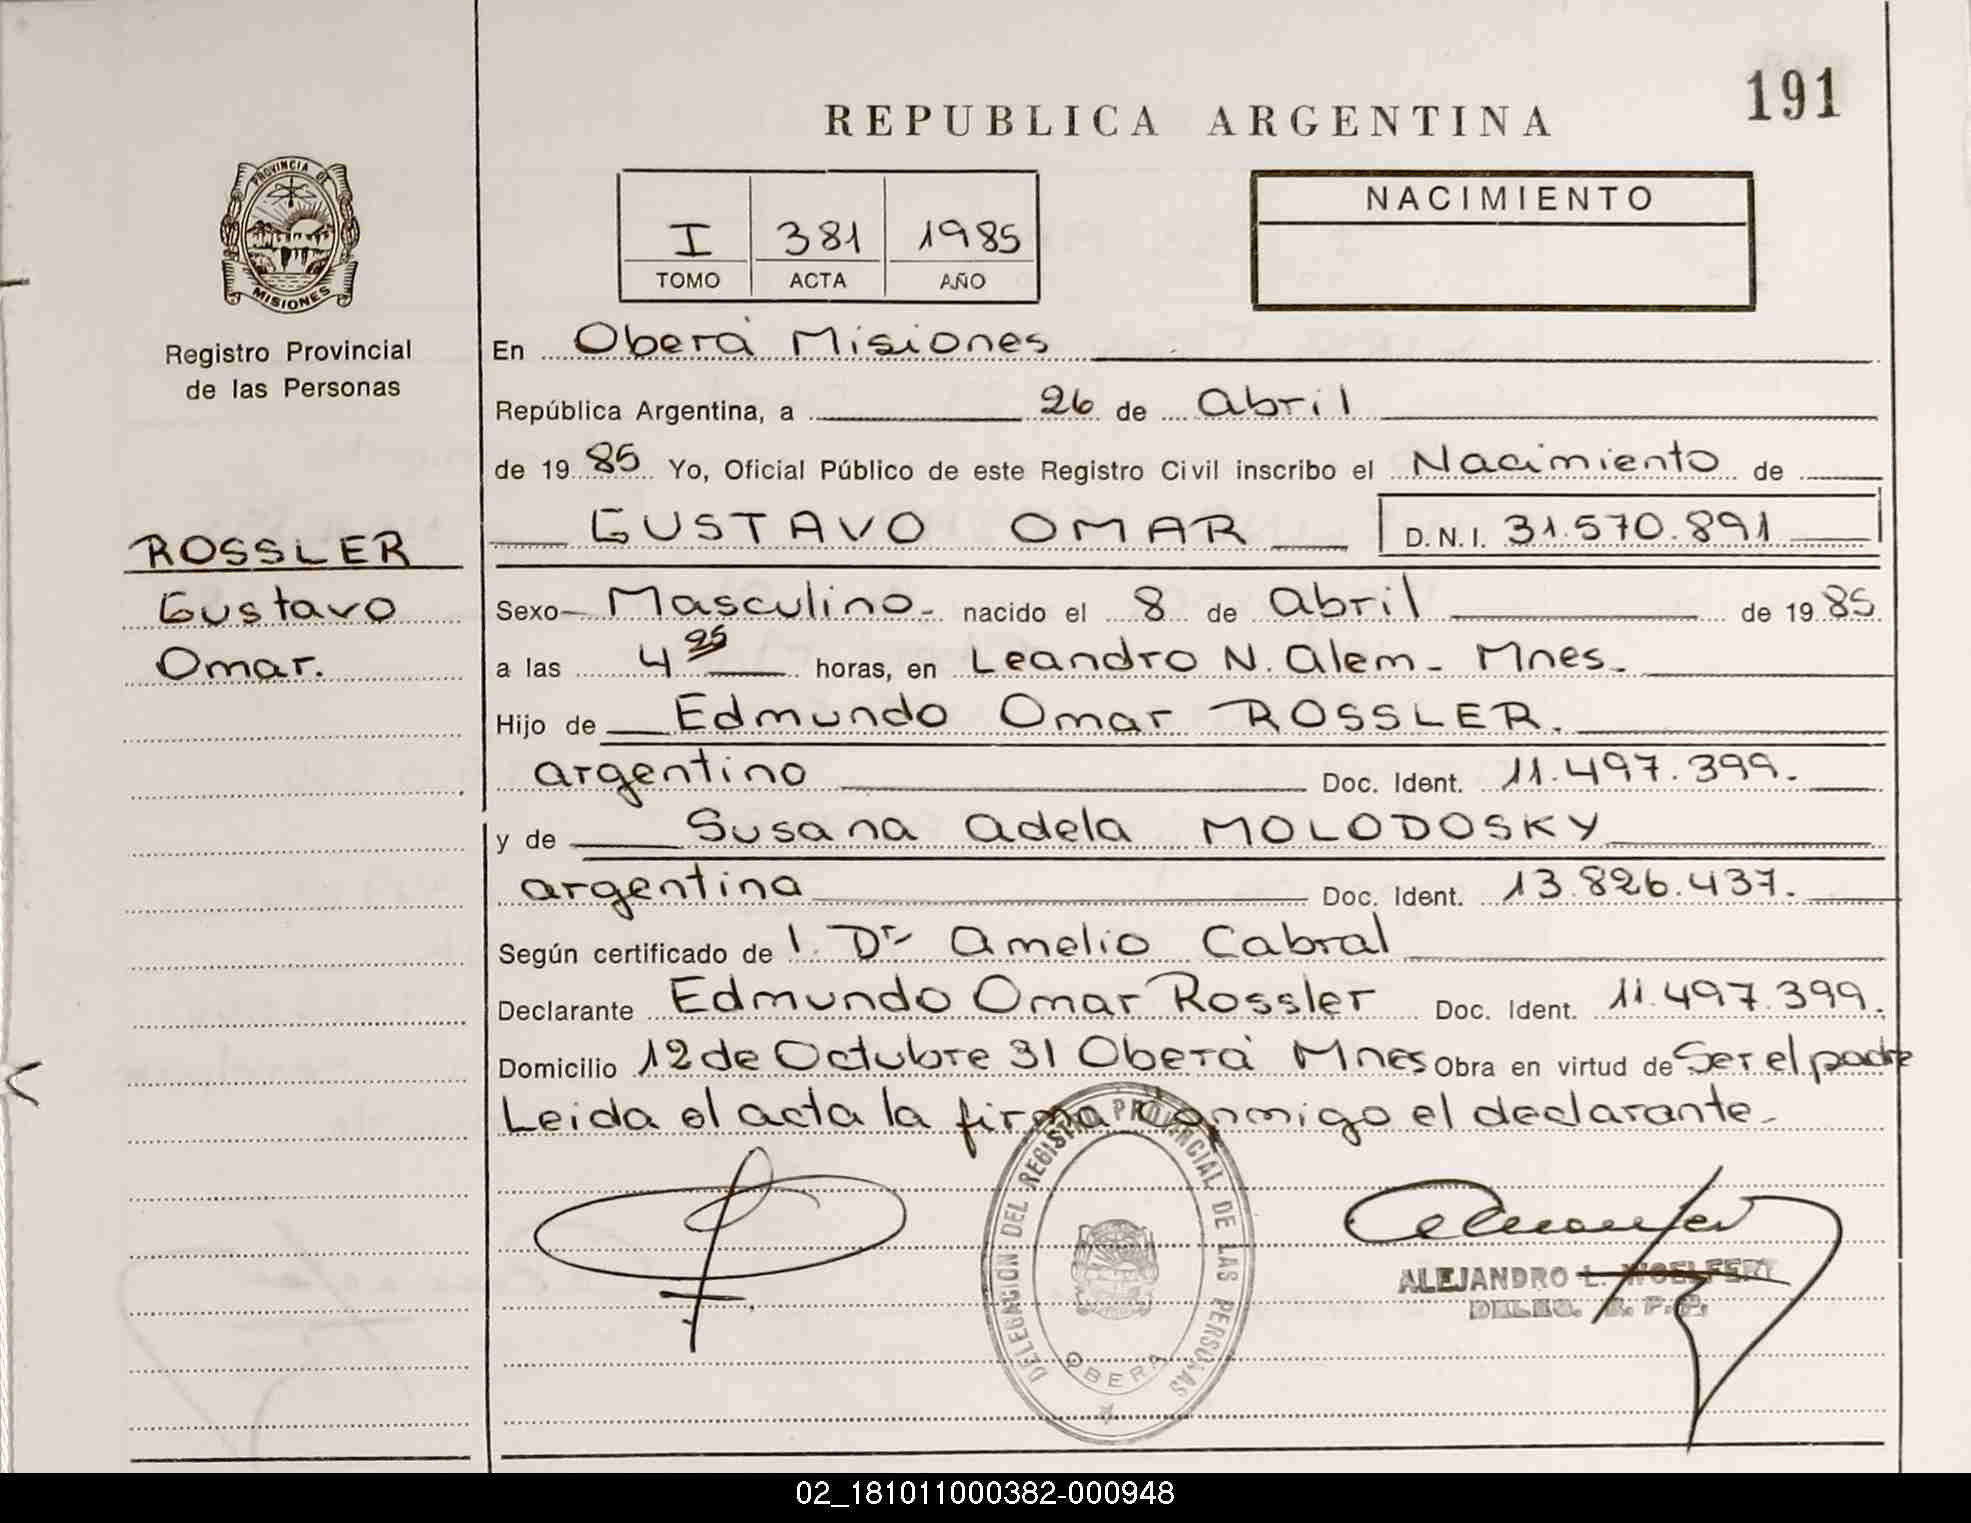 191
REPUBLICA ARGENTINA
PROVINCIA DE
MISIONES
Registro Provincial
de las Personas
I 381 1985
TOMO ACTA AÑO
NACIMIENTO
En Oberá Misiones
República Argentina, a 26 de Abril
de 1985 Yo, Oficial Público de este Registro Civil inscribo el Nacimiento de
GUSTAVO OMAR D.N.I. 31.570.891
ROSSLER
Gustavo
Omar.
Sexo Masculino- nacido el 8 de Abril de 1985
a las 4 25 horas, en Leandro N. Alem - Mnes.
Hijo de Edmundo Omar ROSSLER.
argentino Doc. Ident. 11.497.399.
y de Susana Adela MOLODOSKY
argentina Doc. Ident. 13.826.437.
Según certificado de l. Dr Amelio Cabral
Declarante Edmundo Omar Rossler Doc. Ident. 11.497.399.
Domicilio 12 de Octubre 31 Oberá Mnes Obra en virtud de Ser el padre
Leida el acta la firma conmigo el declarante-
DELEGACION DEL REGISTRO PROVINCIAL DE LAS PERSONAS
OBERA
ALEJANDRO L. WOELFERT
DELEG. R. P. P.
02_181011000382-000948